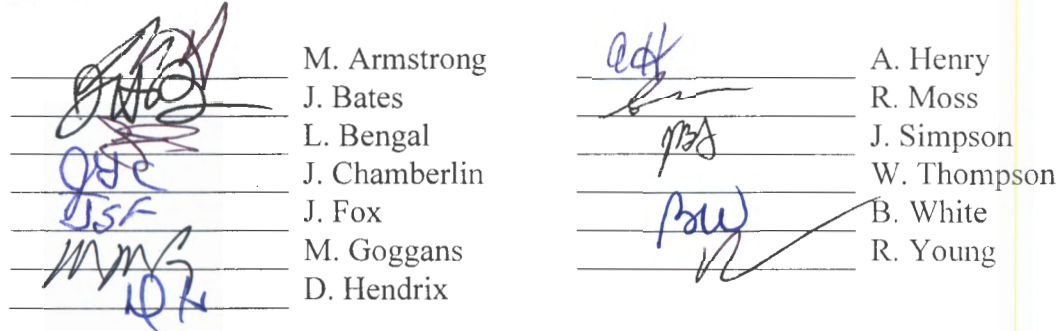 M. Armstrong
J. Bates
L. Bengal
JGC J. Chamberlin
JSF J. Fox
MMG M. Goggans
DH D. Hendrix
aH A. Henry
R. Moss
J. Simpson
W. Thompson
BW B. White
R. Young